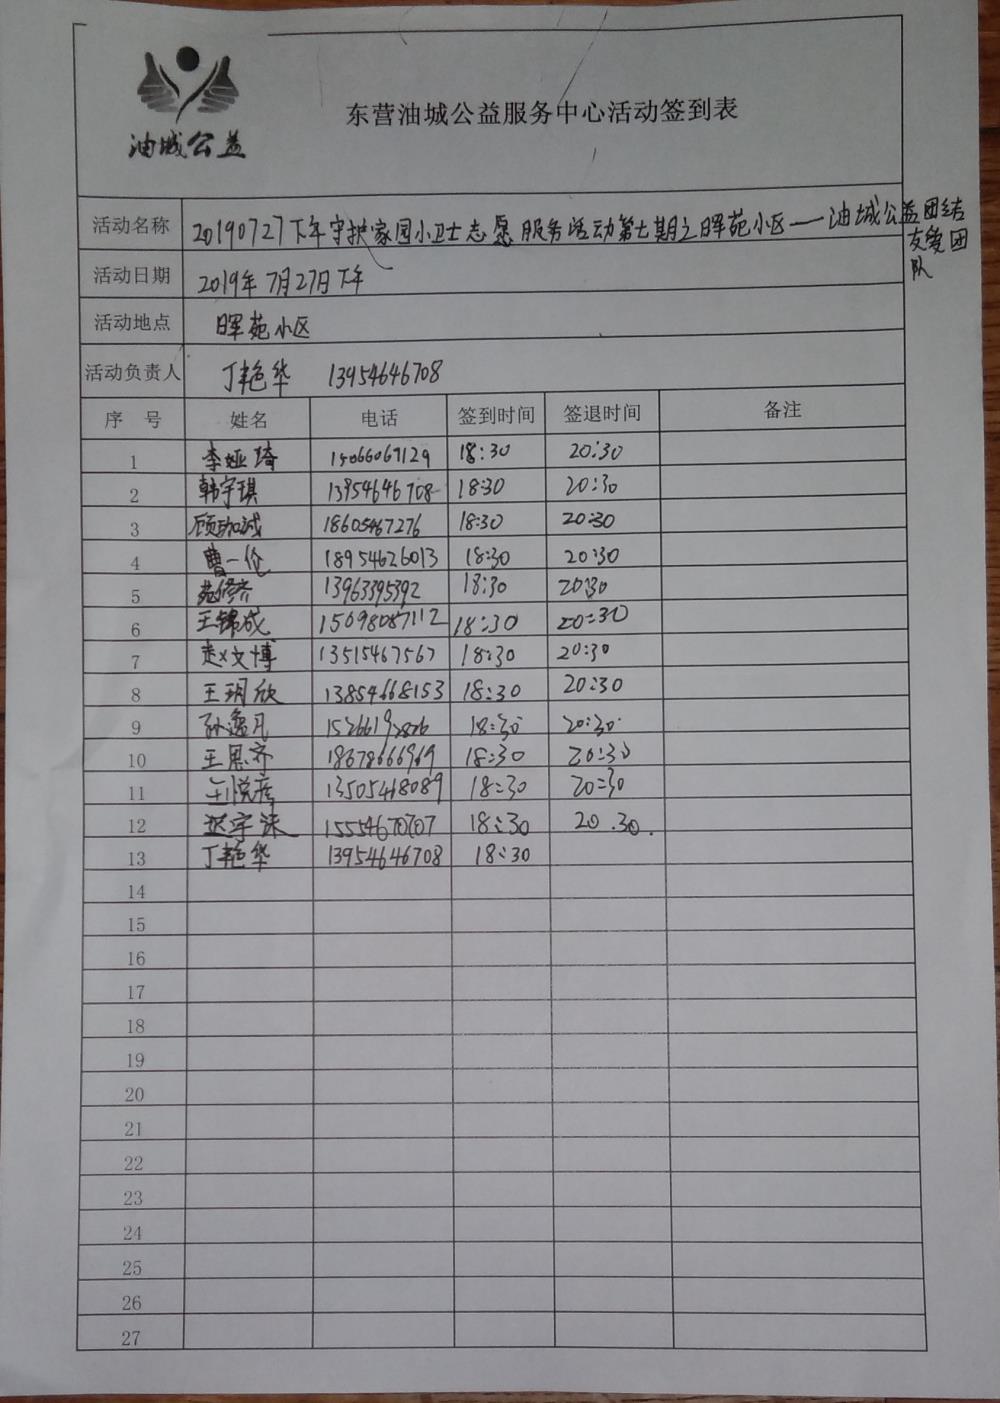 油城公益
东营油城公益服务中心活动签到表
活动名称 20190727下午守护家园小卫士志愿服务活动第七期之晖苑小区——油城公益团结
友爱团
队
活动日期 2019年7月27日下午
活动地点 晖苑小区
活动负责人 丁艳华 13954646708
序 号 姓名 电话 签到时间 签退时间 备注
1 李娅琦 15066067129 18:30 20:30
2 韩宇琪 13954646708 18:30 20:30
3 顾珈诚 18605467276 18:30 20:30
4 曹一伦 18954626013 18:30 20:30
5 苑修齐 13963395392 18:30 20:30
6 王锦成 15698087112 18:30 20:30
7 赵文博 13515467567 18:30 20:30
8 王玥欣 13854668153 18:30 20:30
9 孙逸凡 18:30 20:30
10 王思齐 18678666969 18:30 20:30
11 13505468089 18:30 20:30
12 15554670707 18:30 20.30.
13 丁艳华 13954646708 18:30
14
15
16
17
18
19
20
21
22
23
24
25
26
27